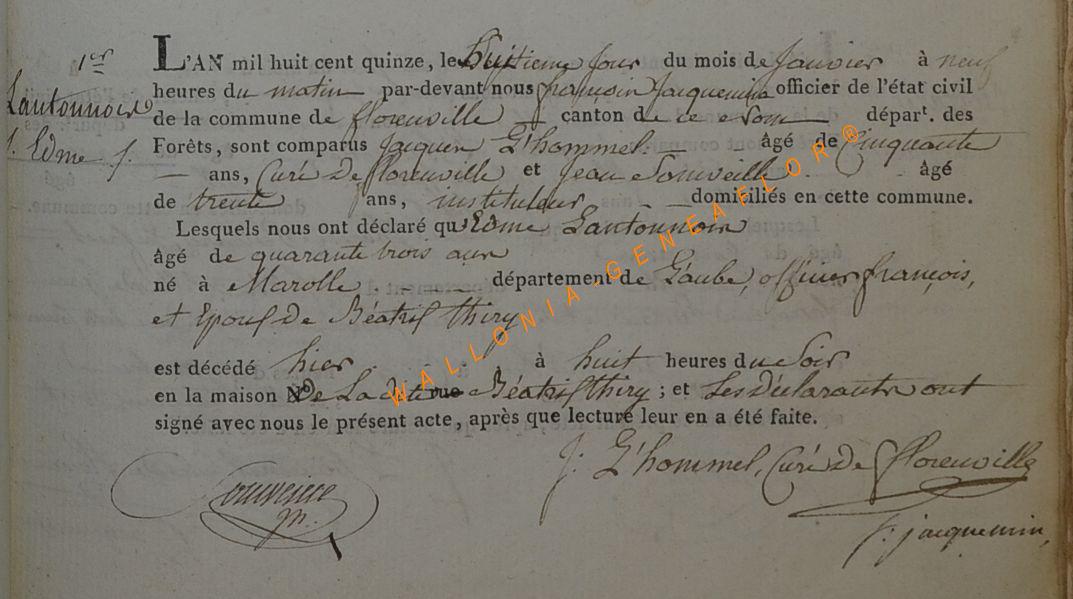 1er
Lantonnois
Edme
L'AN mil huit cent quinze, le huitieme jour du mois de janvier à neuf
heures du matin par-devant nous françois jacquemin officier de l'état civil
de la commune de florenville canton de ce nom départ. des
Forêts, sont comparus jacques L'hommel âgé de Cinquante
ans, Curé de florenville et jean âgé
de trente ans, instituteur domiciliés en cette commune.
Lesquels nous ont déclaré qu'Edme Lantonnois
âgé de quarante trois ans
né à Marolle département de L'aube, officier françois,
et Epoux de Béatrix thiry
est décédé hier à huit heures du soir
en la maison No de La dite rue Béatrix thiry ; et Les déclarants ont
signé avec nous le présent acte, après que lecture leur en a été faite.
J: L'hommel, Curé de florenville
f: jacquemin,
WALLONIA-GENEAFLOR®